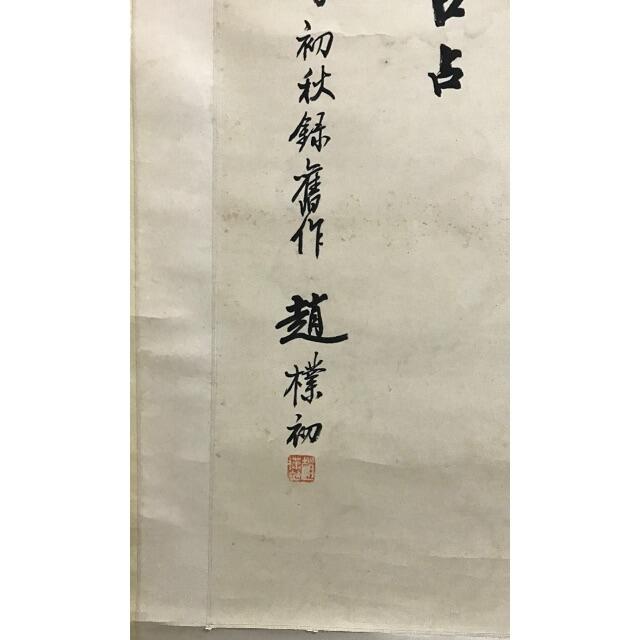 占
初秋録舊作
趙樸初